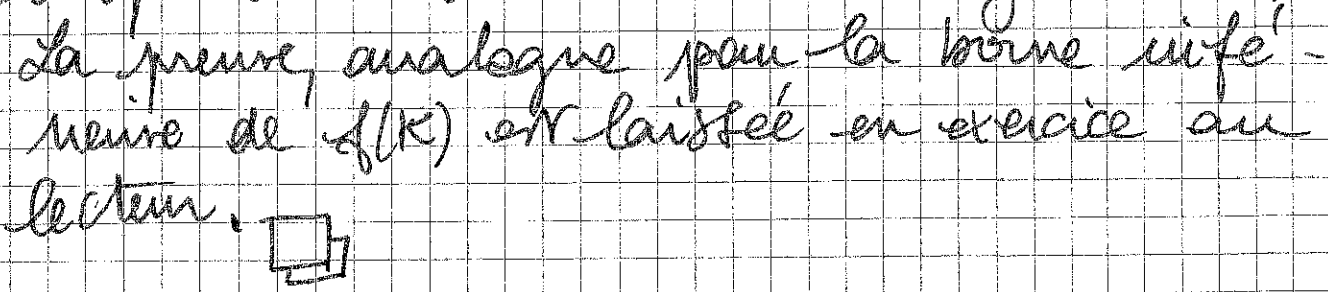 La preuve, analogue pour la borne infé-
rieure de f(K) est laissée en exercice au
lecteur.